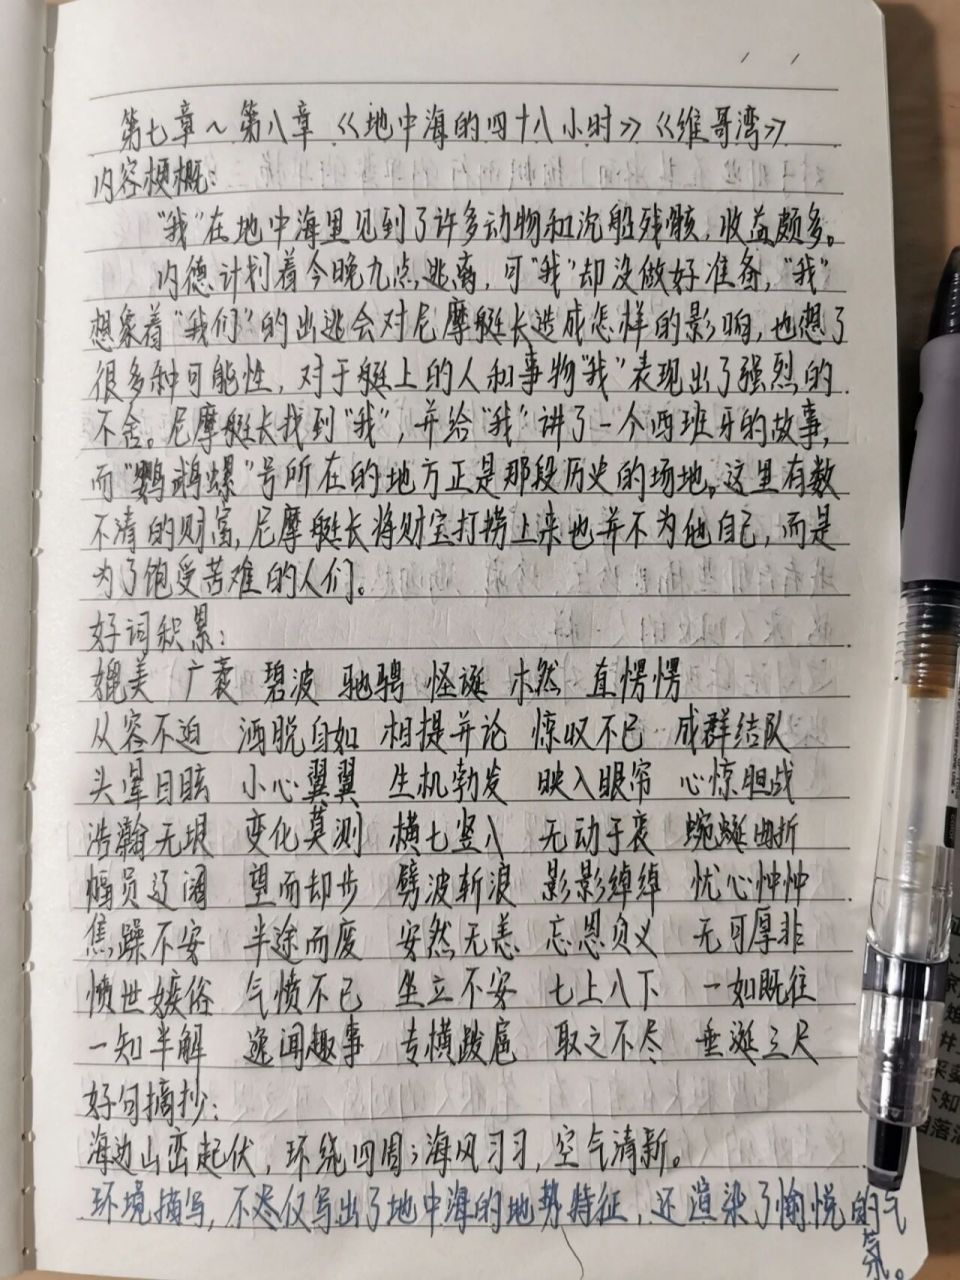 第七章～第八章《地中海的四十八小时》《维哥湾》
内容梗概：
"我"在地中海里见到了许多动物和沉船残骸，收益颇多。
内德计划着今晚九点逃离，可"我"却没做好准备，"我"
想象着"我们"的出逃会对尼摩艇长造成怎样的影响，也想了
很多种可能性，对于艇上的人和事物"我"表现出了强烈的
不舍。尼摩艇长找到"我"，并给"我"讲了一个西班牙的故事，
而"鹦鹉螺"号所在的地方正是那段历史的场地。这里有数
不清的财富，尼摩艇长将财宝打捞上来也并不为他自己，而是
为了饱受苦难的人们。
好词积累：
媲美 广袤 碧波 驰骋 怪诞 木然 直愣愣
从容不迫 洒脱自如 相提并论 惊叹不已 成群结队
头晕目眩 小心翼翼 生机勃发 映入眼帘 心惊胆战
浩瀚无垠 变化莫测 横七竖八 无动于衷 蜿蜒曲折
幅员辽阔 望而却步 劈波斩浪 影影绰绰 忧心忡忡
焦躁不安 半途而废 安然无恙 忘恩负义 无可厚非
愤世嫉俗 气愤不已 坐立不安 七上八下 一如既往
一知半解 逸闻趣事 专横跋扈 取之不尽 垂涎三尺
好句摘抄：
海边山峦起伏，环绕四周；海风习习，空气清新。
环境描写，不仅写出了地中海的地势特征，还渲染了愉悦的气
氛。
不知